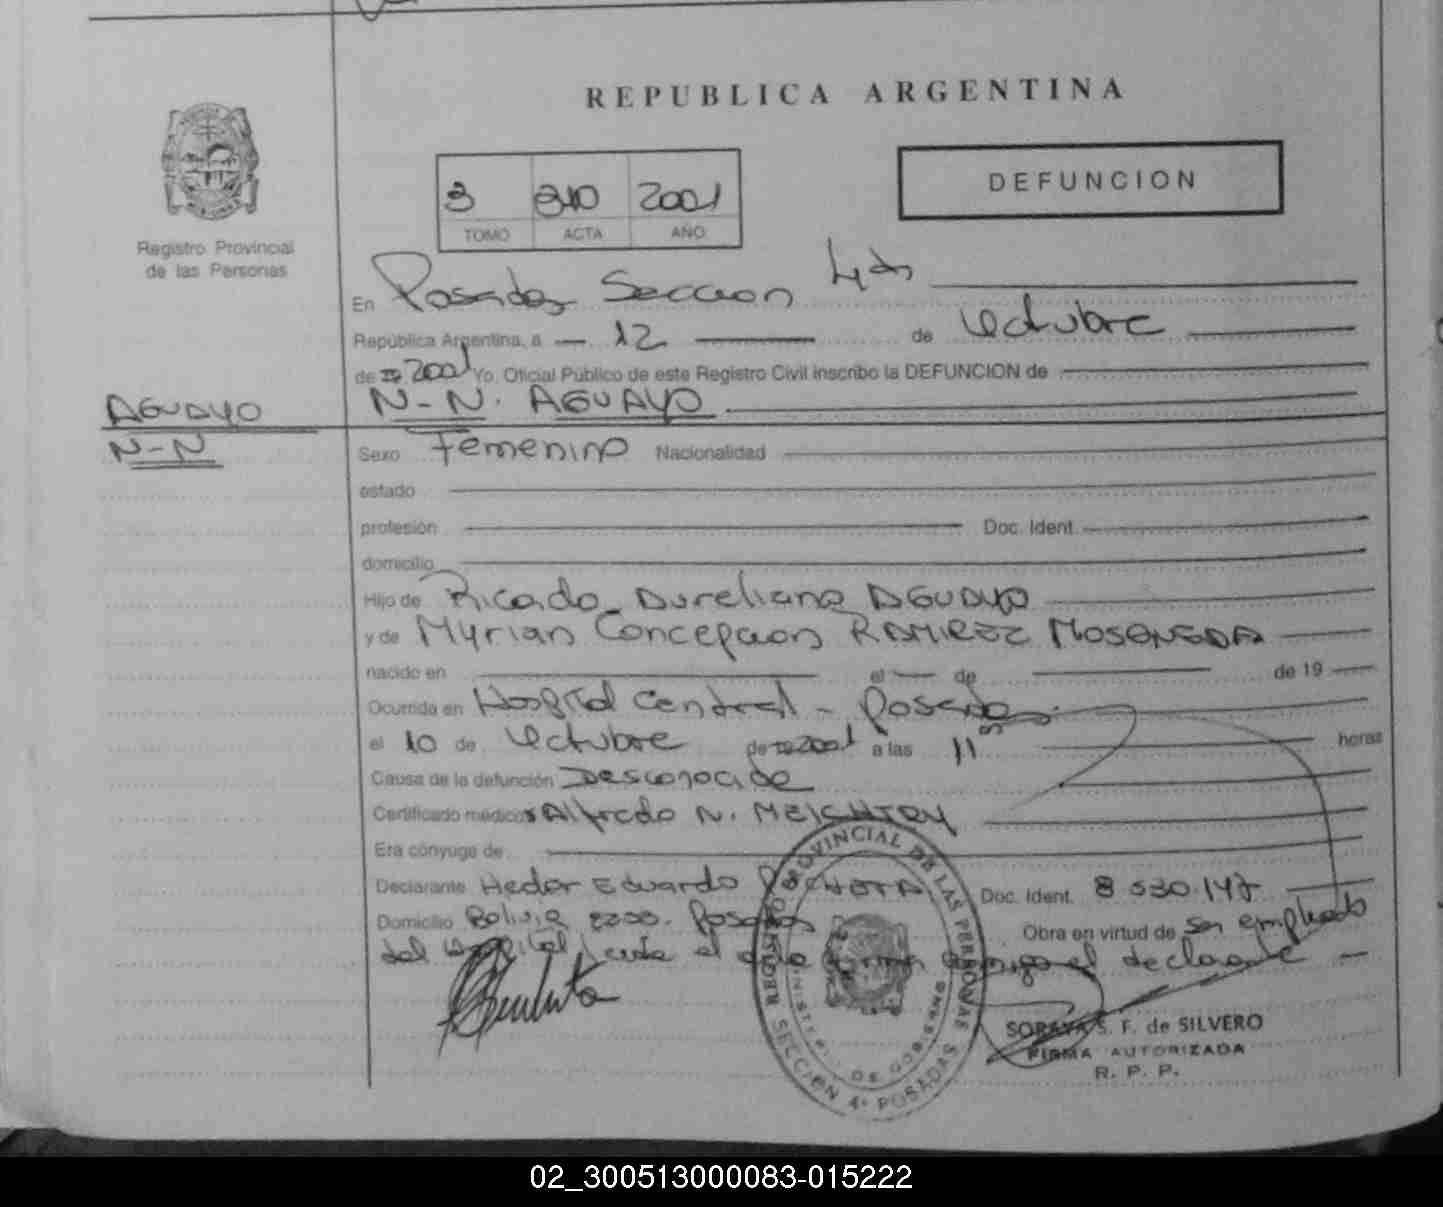 REPUBLICA ARGENTINA
Registro Provincial
de las Personas
3 310 2001
TOMO ACTA AÑO
DEFUNCION
En Posadas Seccion 4ta
República Argentina, a 12 de Octubre
de 2001 Yo, Oficial Público de este Registro Civil inscribo la DEFUNCION de
AGUAYO
N-N
N-N. AGUAYO
Sexo Femenino Nacionalidad
estado
profesión Doc. Ident.
domicilio
Hijo de Ricardo Aureliano AGUAYO
y de Myrian Concepcion RAMIREZ MOSQNEDA
nacido en el de de 19
Ocurrida en Hospital Central - Posadas
el 10 de Octubre de 2001 a las 11 horas
Causa de la defunción Desconocida
Certificado médico Alfredo N. MEICHTRY
Era cónyuge de
Declarante Hector Eduardo Doc. Ident. 8.530.147
Domicilio Bolivia Posadas Obra en virtud de ser empleado
del Hospital el declarante
REGISTRO PROVINCIAL DE LAS PERSONAS
SECCION 4ª POSADAS
MINISTERIO DE GOBIERNO
SORAYA S. F. de SILVERO
FIRMA AUTORIZADA
R. P. P.
02_300513000083-015222